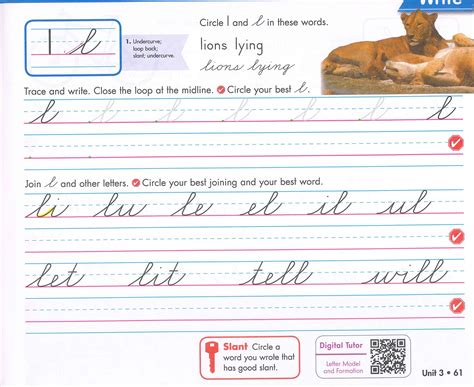 Write
Circle l and l in these words.
l l
1. Undercurve;
loop back;
slant; undercurve.
lions lying
lions lying
Trace and write. Close the loop at the midline. Circle your best l.
l l l l l l l
Join l and other letters. Circle your best joining and your best word.
li lu le el il ul
let lit tell will
Slant Circle a
word you wrote that
has good slant.
Digital Tutor
Letter Model
and Formation
Unit 3 • 61